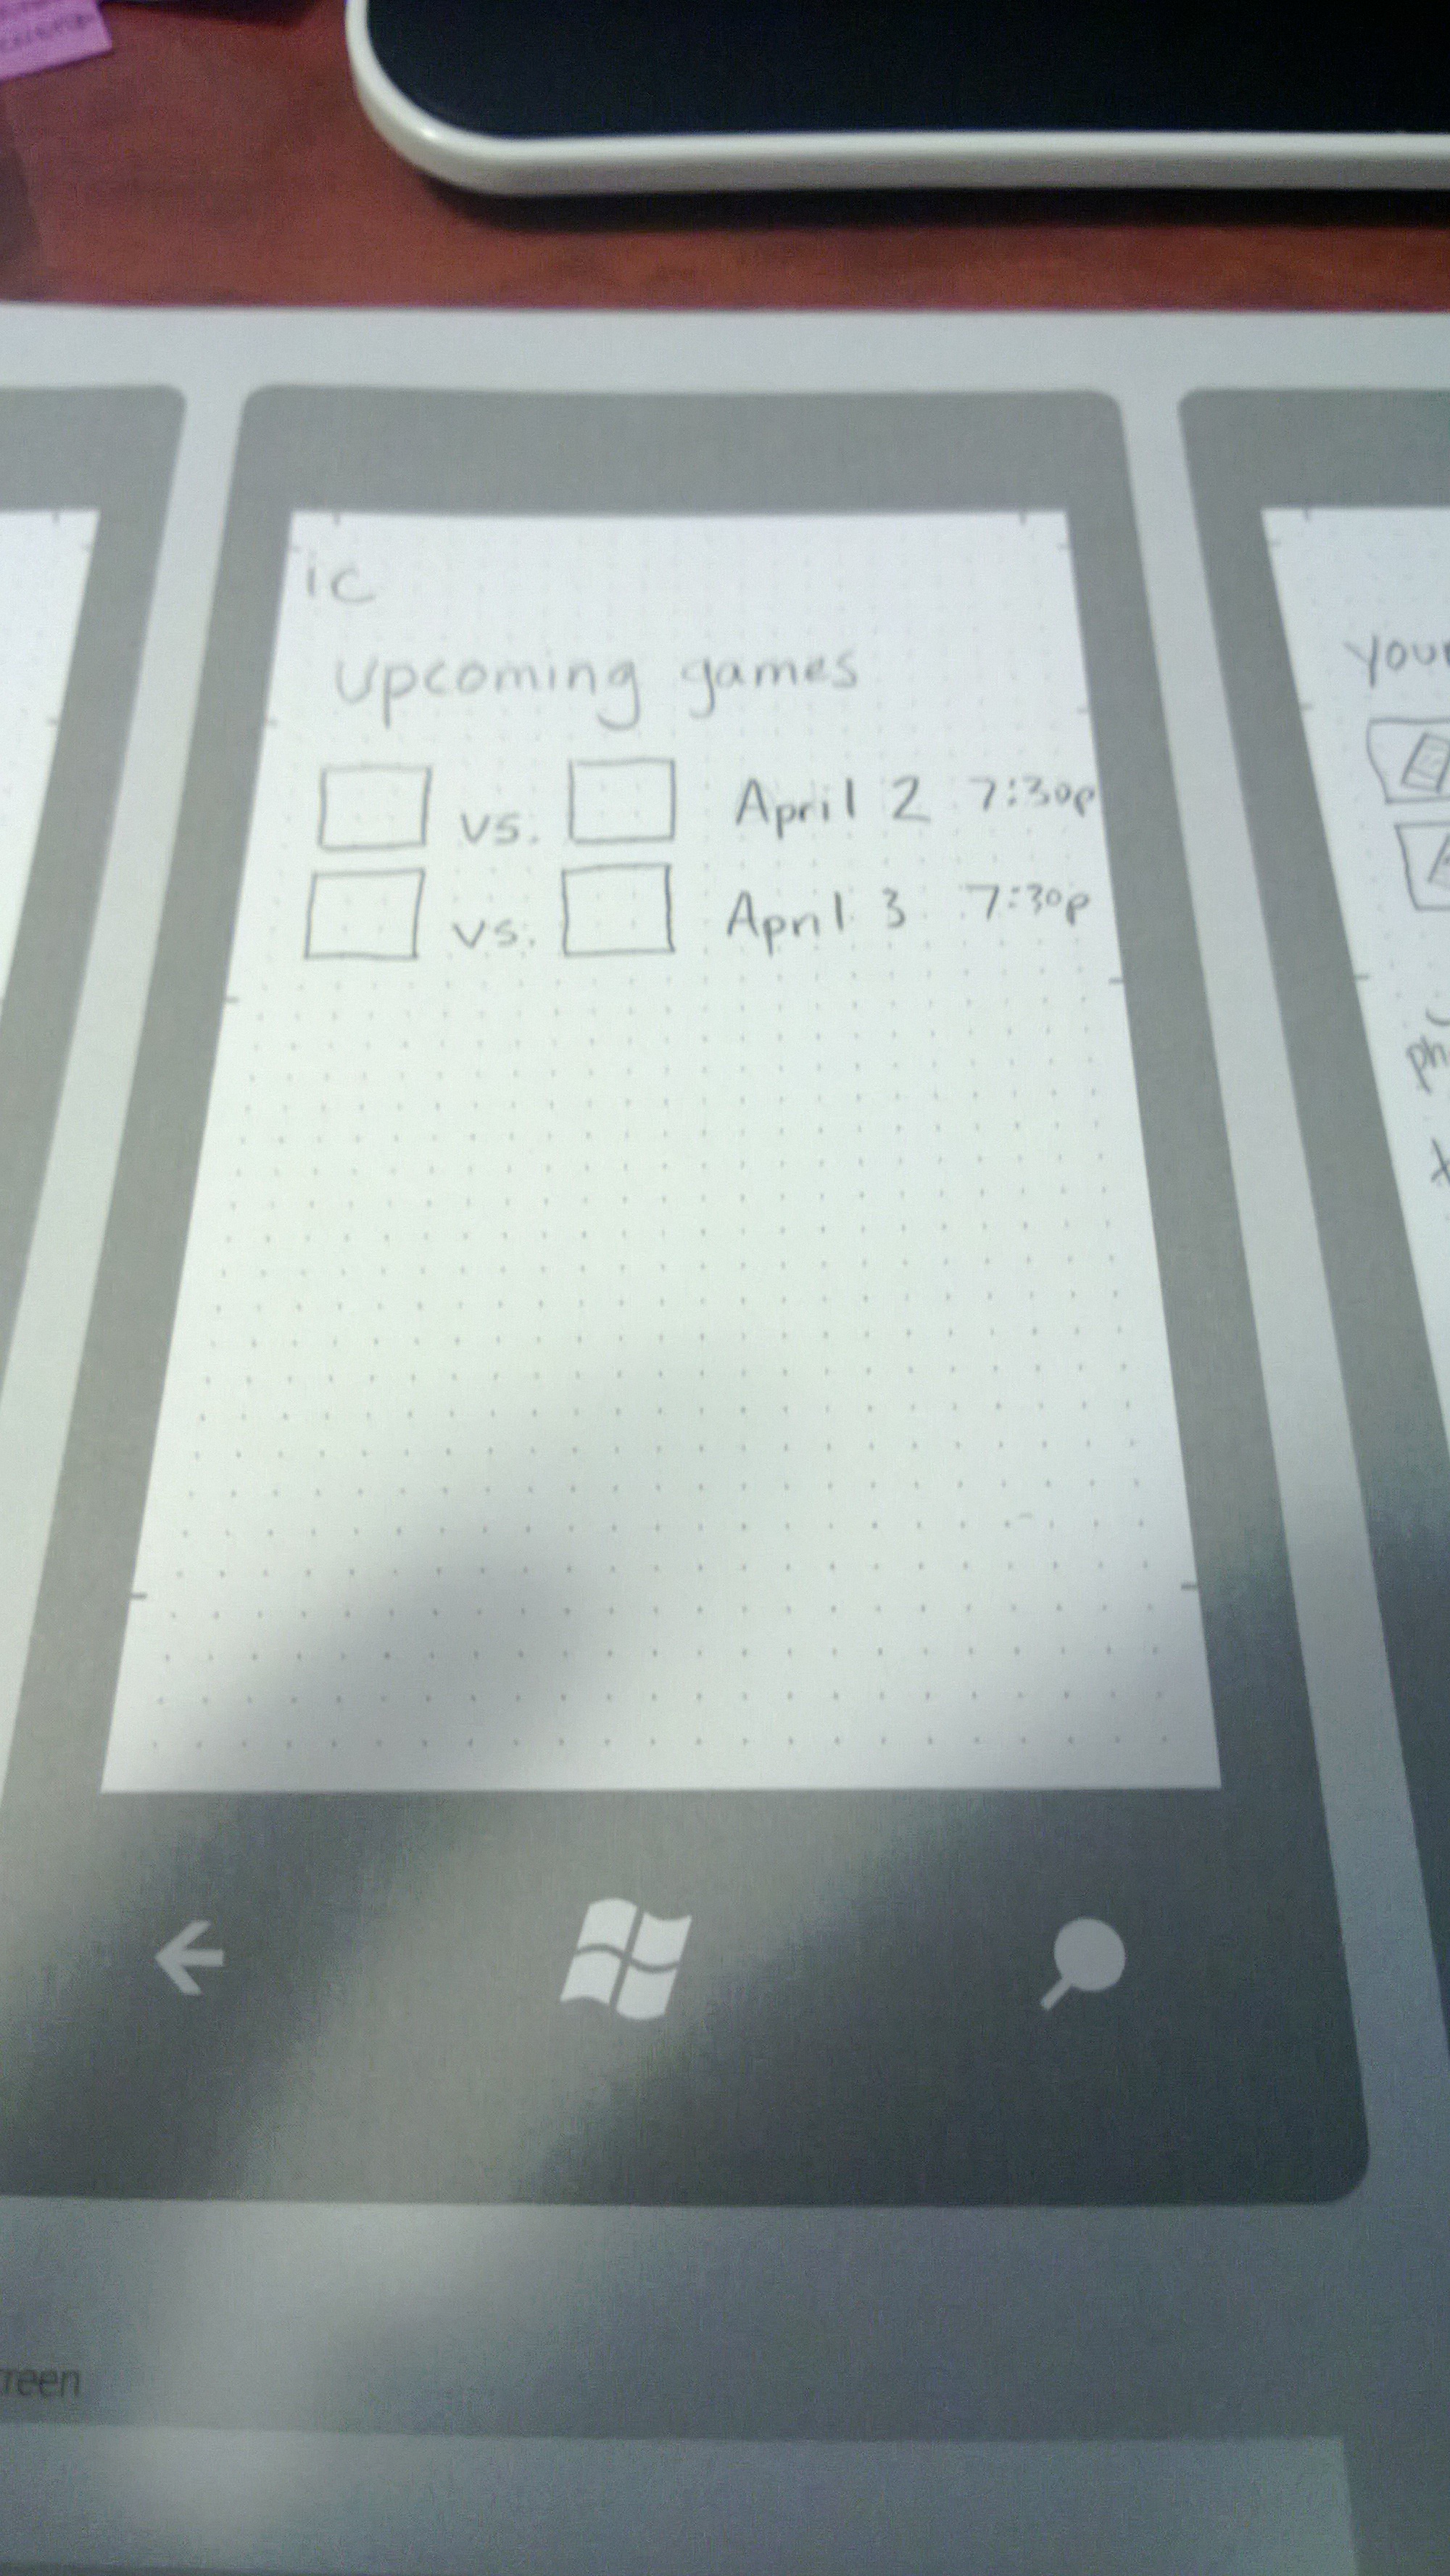 ic
upcoming games
vs. April 2 7:30p
vs. April 3 7:30p